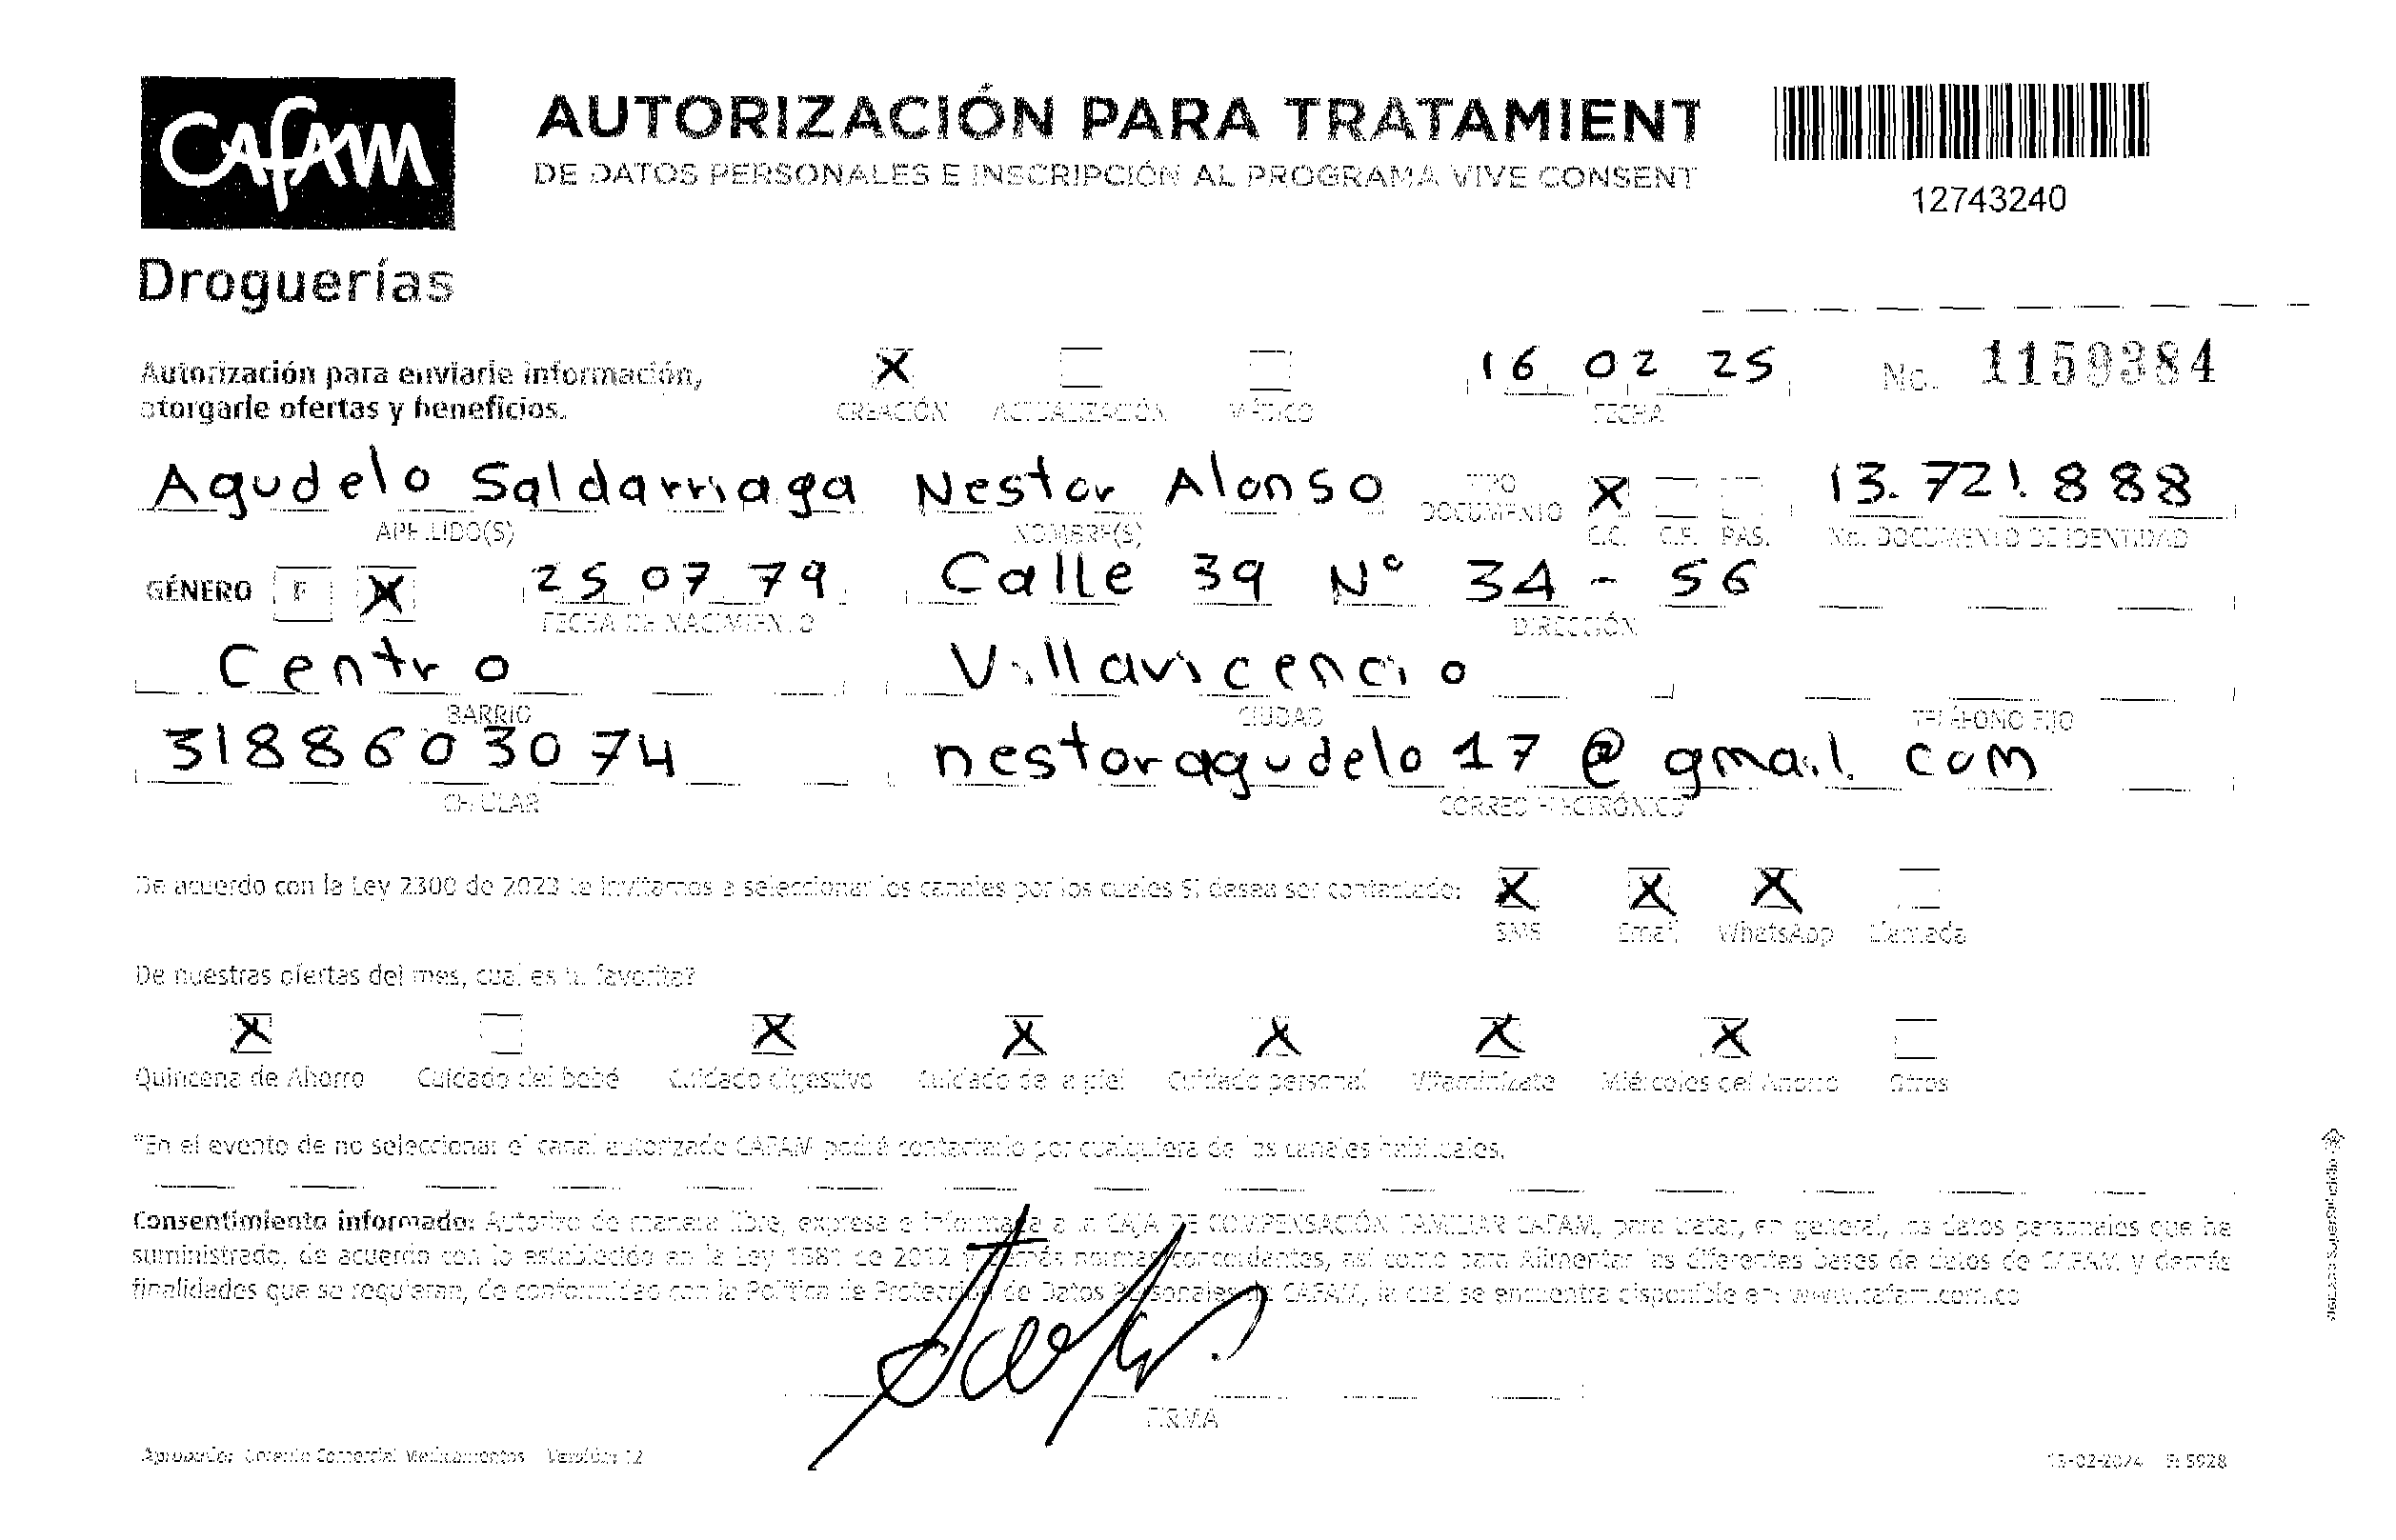 CAFAM
Droguerías
AUTORIZACIÓN PARA TRATAMIENT
DE DATOS PERSONALES E INSCRIPCIÓN AL PROGRAMA VIVE CONSENT
12743240
Autorización para enviarle información,
otorgarle ofertas y beneficios.
X CREACIÓN ACTUALIZACIÓN MÉDICO
16 02 25
FECHA
No. 1159384
Agudelo Saldarriaga Nestor Alonso
APELLIDO(S) NOMBRE(S)
TIPO DOCUMENTO X C.C. C.E. PAS.
13.721.888
No. DOCUMENTO DE IDENTIDAD
GÉNERO F X 25 07 79 Calle 39 N° 34 - 56
FECHA DE NACIMIENTO DIRECCIÓN
Centro Villavicencio
BARRIO CIUDAD TELÉFONO FIJO
3188603074 nestoragudelo17@gmail.com
CELULAR CORREO ELECTRÓNICO
De acuerdo con la Ley 2300 de 2023 te invitamos a seleccionar los canales por los cuales SI desea ser contactado:
X X X
SMS Email WhatsApp Llamada
De nuestras ofertas del mes, cual es tu favorita?
X X X X X X
Quincena de Ahorro Cuidado del bebé Cuidado digestivo Cuidado de la piel Cuidado personal Vitamínizate Miércoles del Ahorro Otros
*En el evento de no seleccionar el canal autorizado CAFAM podrá contactarlo por cualquiera de los canales habituales.
Consentimiento informado: Autorizo de manera libre, expresa e informada a la CAJA DE COMPENSACIÓN FAMILIAR CAFAM, para tratar, en general, los datos personales que he
suministrado, de acuerdo con lo establecido en la Ley 1581 de 2012 y demás normas concordantes, así como para Alimentar las diferentes bases de datos de CAFAM y demás
finalidades que se requieran, de conformidad con la Política de Protección de Datos Personales de CAFAM, la cual se encuentra disponible en: www.cafam.com.co
FIRMA
Aprobación: Gerente Comercial Medicamentos Versión: 12
13-02-2024 F: 5928